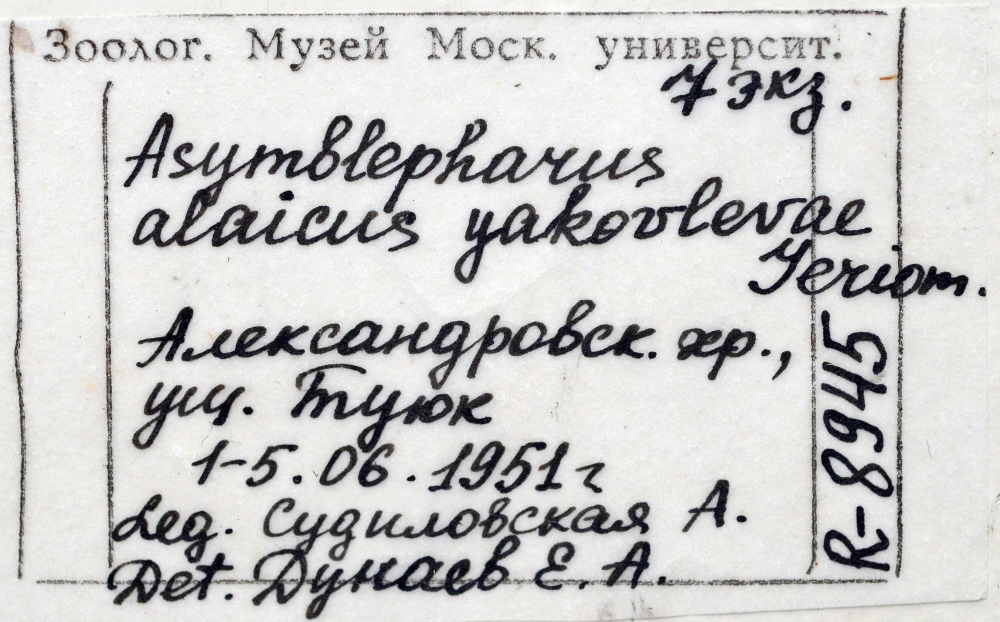 Зоолог. Музей Моск. университ.
7 экз.
Asymblepharus
alaicus yakovlevae
Jeriom.
Александровск. хр.,
ущ. Туюк
1-5.06.1951г
Leg. Судиловская А.
Det. Дунаев Е. А.
R-8945